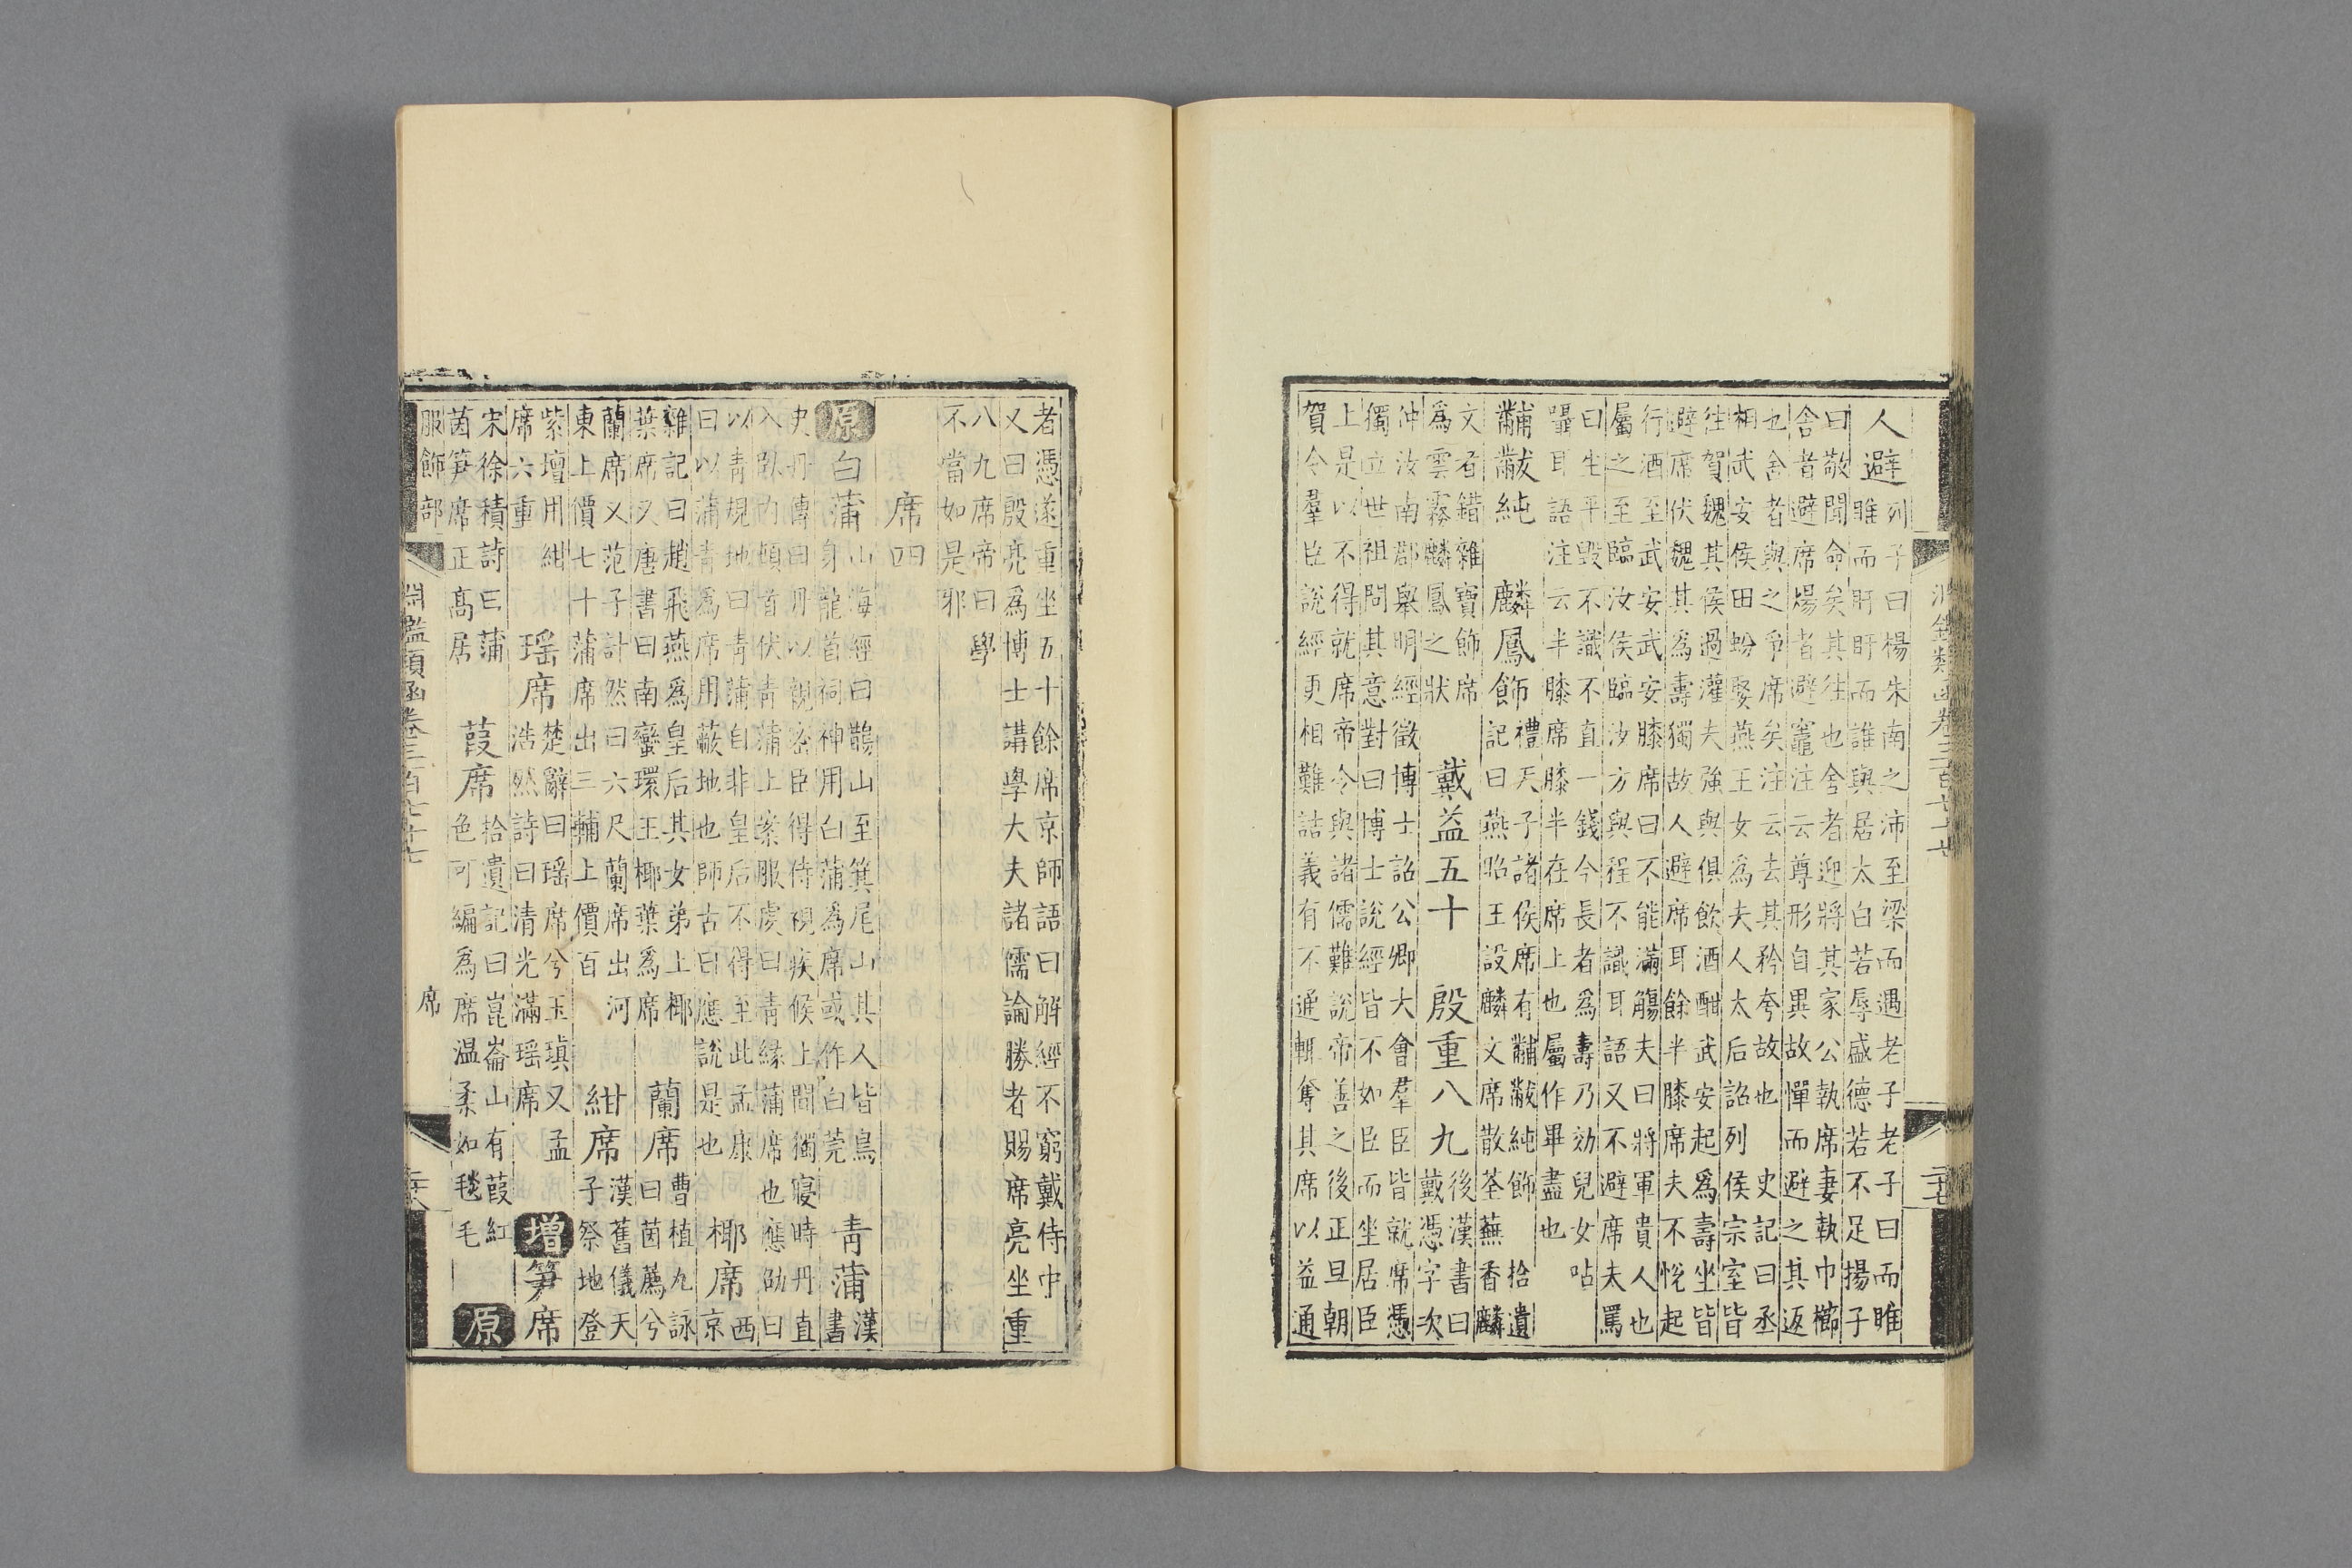 淵鑑類函卷三百七十七
人避
列子曰楊朱南之沛至梁而遇老子老子曰而睢
睢而盱盱而誰與居太白若辱盛德若不足揚子
曰敬聞命矣其往也舍者迎將其家公執席妻執巾櫛
舍者避席煬者避竈注云尊形自異故憚而避之其返
也舍者與之爭席矣注云去其矜夸故也 史記曰丞
相武安侯田蚡娶燕王女為夫人太后詔列侯宗室皆
往賀魏其侯過灌夫強與俱飲酒酣武安起為壽坐皆
避席伏魏其為壽獨故人避席耳餘半膝席夫不悅起
行酒至武安武安膝席曰不能滿觴夫曰將軍貴人也
屬之至臨汝侯臨汝方與程不識耳語又不避席夫罵
曰生平毀不識不直一錢今長者為壽乃効兒女呫
囁耳語注云半膝席膝半在席上也屬作畢盡也
黼黻純 麟鳳飾
禮天子諸侯席有黼黻純飾 拾遺
記曰燕昭王設麟文席散荃蕪香麟
文者錯雜寶飾席
為雲霧麟鳳之狀
戴益五十 殷重八九
後漢書曰
戴憑字次
仲汝南郡舉明經徵博士詔公卿大會羣臣皆就席憑
獨立世祖問其意對曰博士說經皆不如臣而坐居臣
上是以不得就席帝令與諸儒難說帝善之後正旦朝
賀令羣臣說經更相難詰義有不通輒奪其席以益通
者憑遂重坐五十餘席京師語曰解經不窮戴侍中
又曰殷亮為博士講學大夫諸儒論勝者賜席亮坐重
八九席帝曰學
不當如是邪
席四
原 白蒲
山海經曰鵲山至箕尾山其人皆鳥
身龍首祠神用白蒲為席或作白莞
青蒲
漢
書
史丹傳曰丹以親密臣得侍視疾候上間獨寢時丹直
入臥内頓首伏青蒲上案服虔曰青緣蒲席也應劭曰
以青規地曰青蒲自非皇后不得至此孟康
曰以蒲青為席用蔽地也師古曰應說是也
椰席
西
京
雜記曰趙飛燕為皇后其女弟上椰
葉席又唐書曰南蠻環王椰葉為席
蘭席
曹植九詠
曰茵薦兮
蘭席又范子計然曰六尺蘭席出河
東上價七十蒲席出三輔上價百
紺席
漢舊儀天
子祭地登
紫壇用紺
席六重
瑶席
楚辭曰瑶席兮玉瑱又孟
浩然詩曰清光滿瑶席
增 笋席
宋徐積詩曰蒲
茵笋席正高居
葭席
拾遺記曰崑崙山有葭紅
色可編為席温柔如毯毛
原
服飾部 淵鑑類函卷三百七十七 席